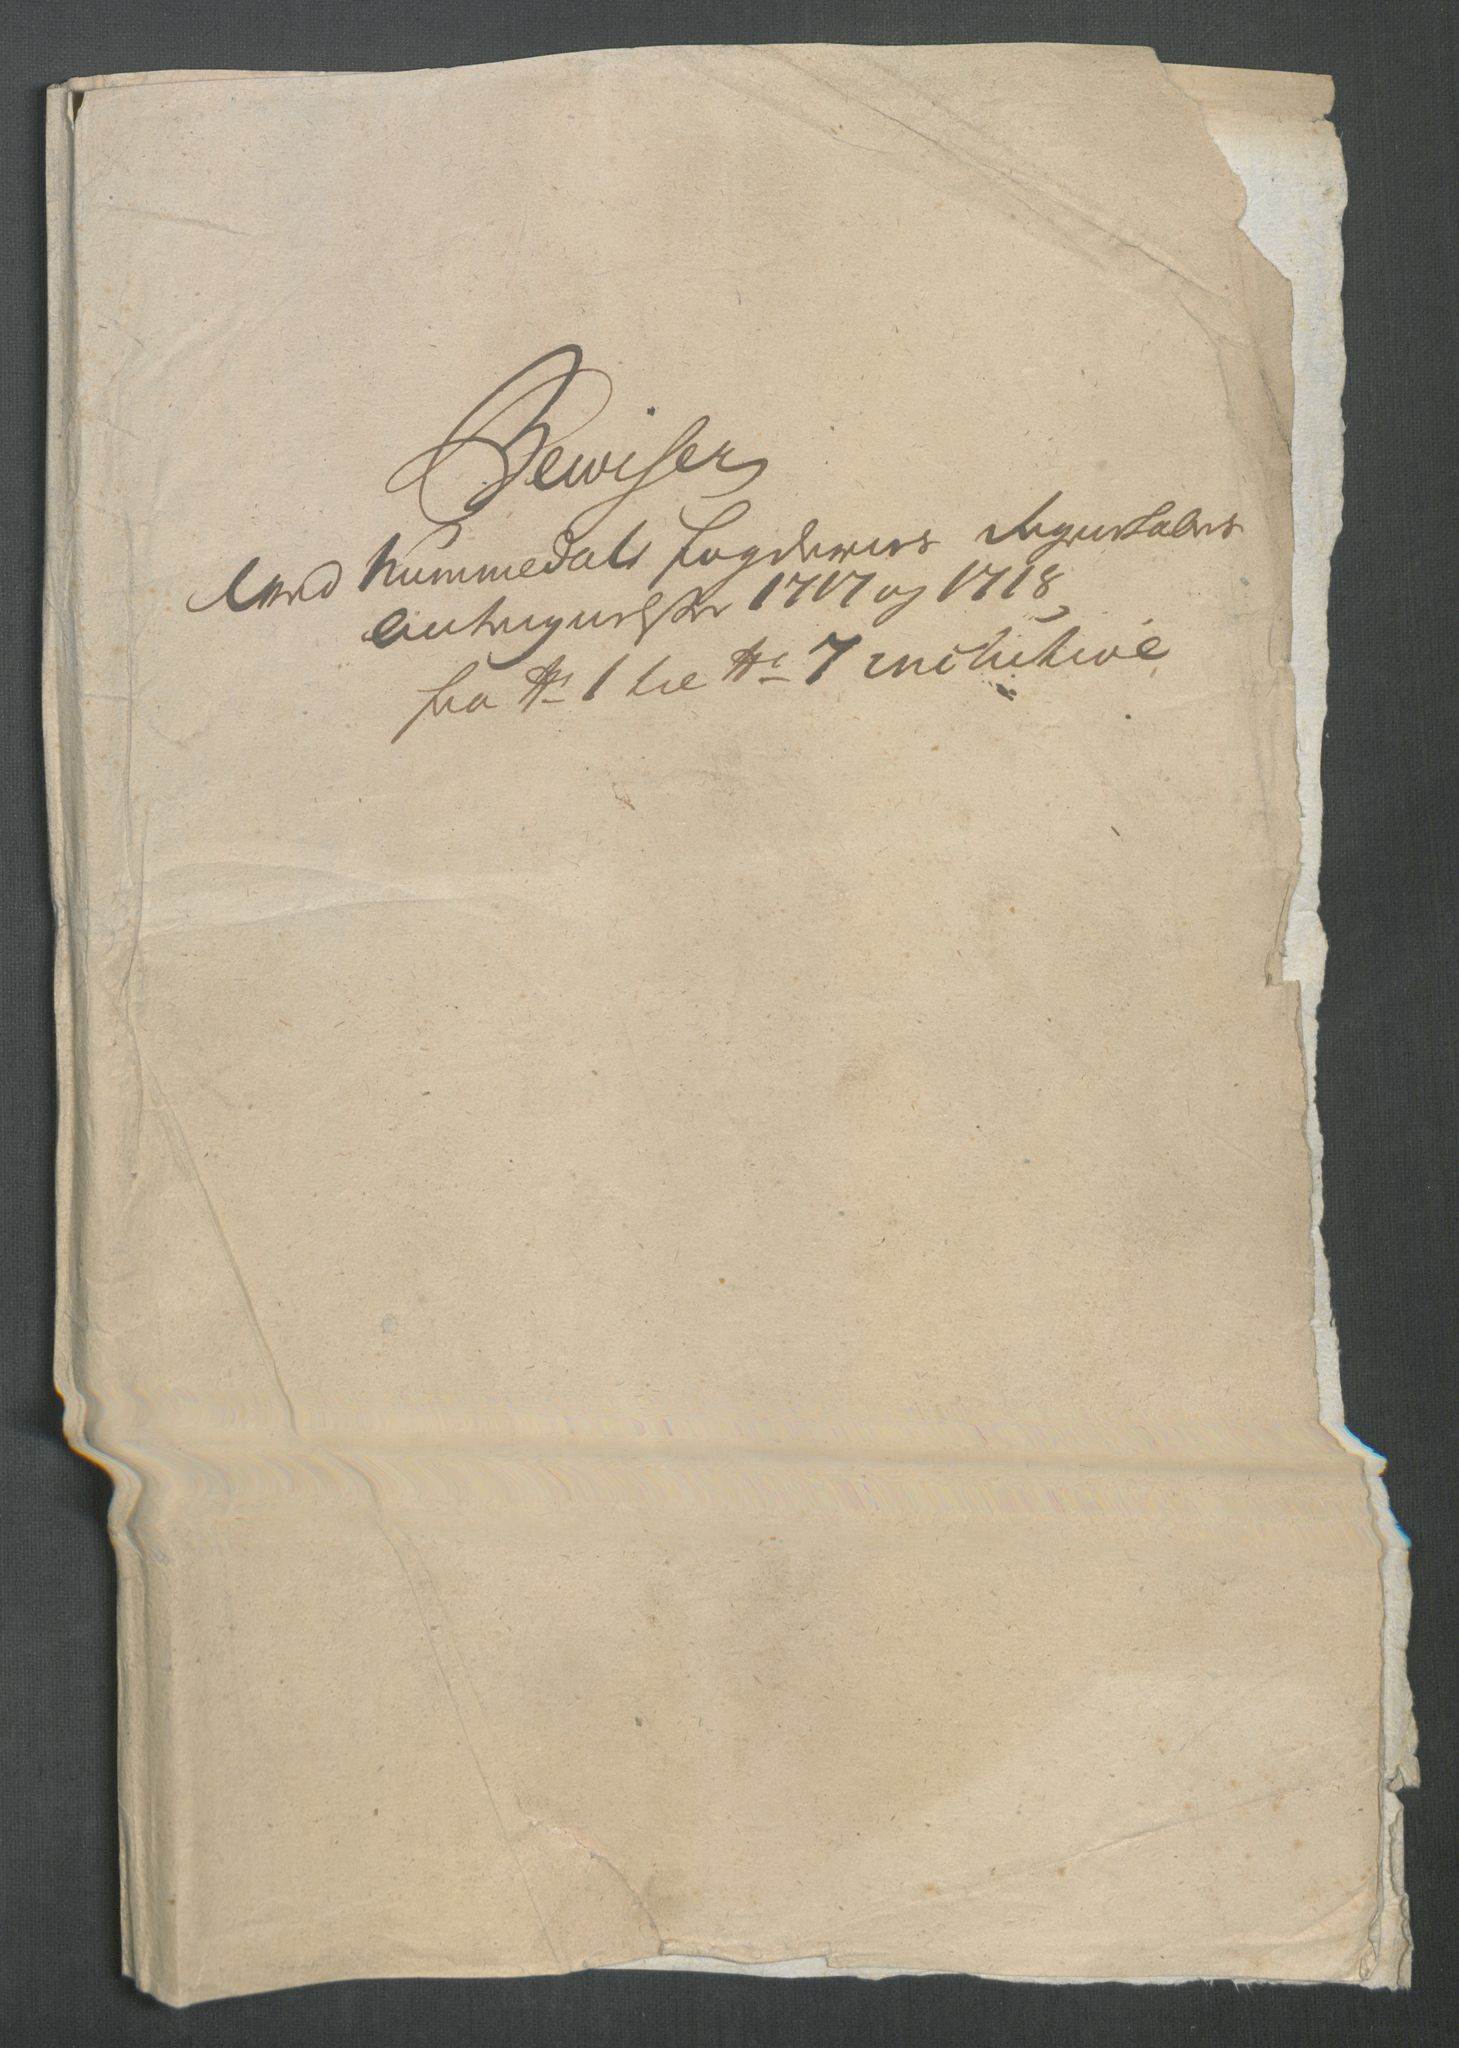 Bewiser
Med Nummedals fogderies Regenskaber
Antegnelser 1717 og 1718
fra No 1 til No 7 inclusive